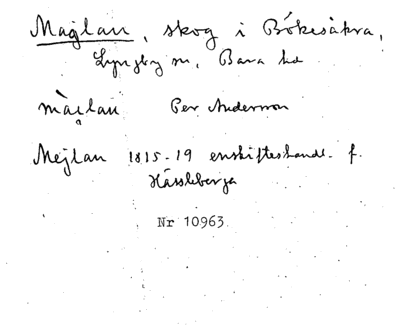 Maglan, skog i Bökesåkra,
Lyngby sn, Bara hd
màι̨lan Per Andersson
Mejlan 1815-19 enskifteshandl. f.
Hässleberga
Nr 10963